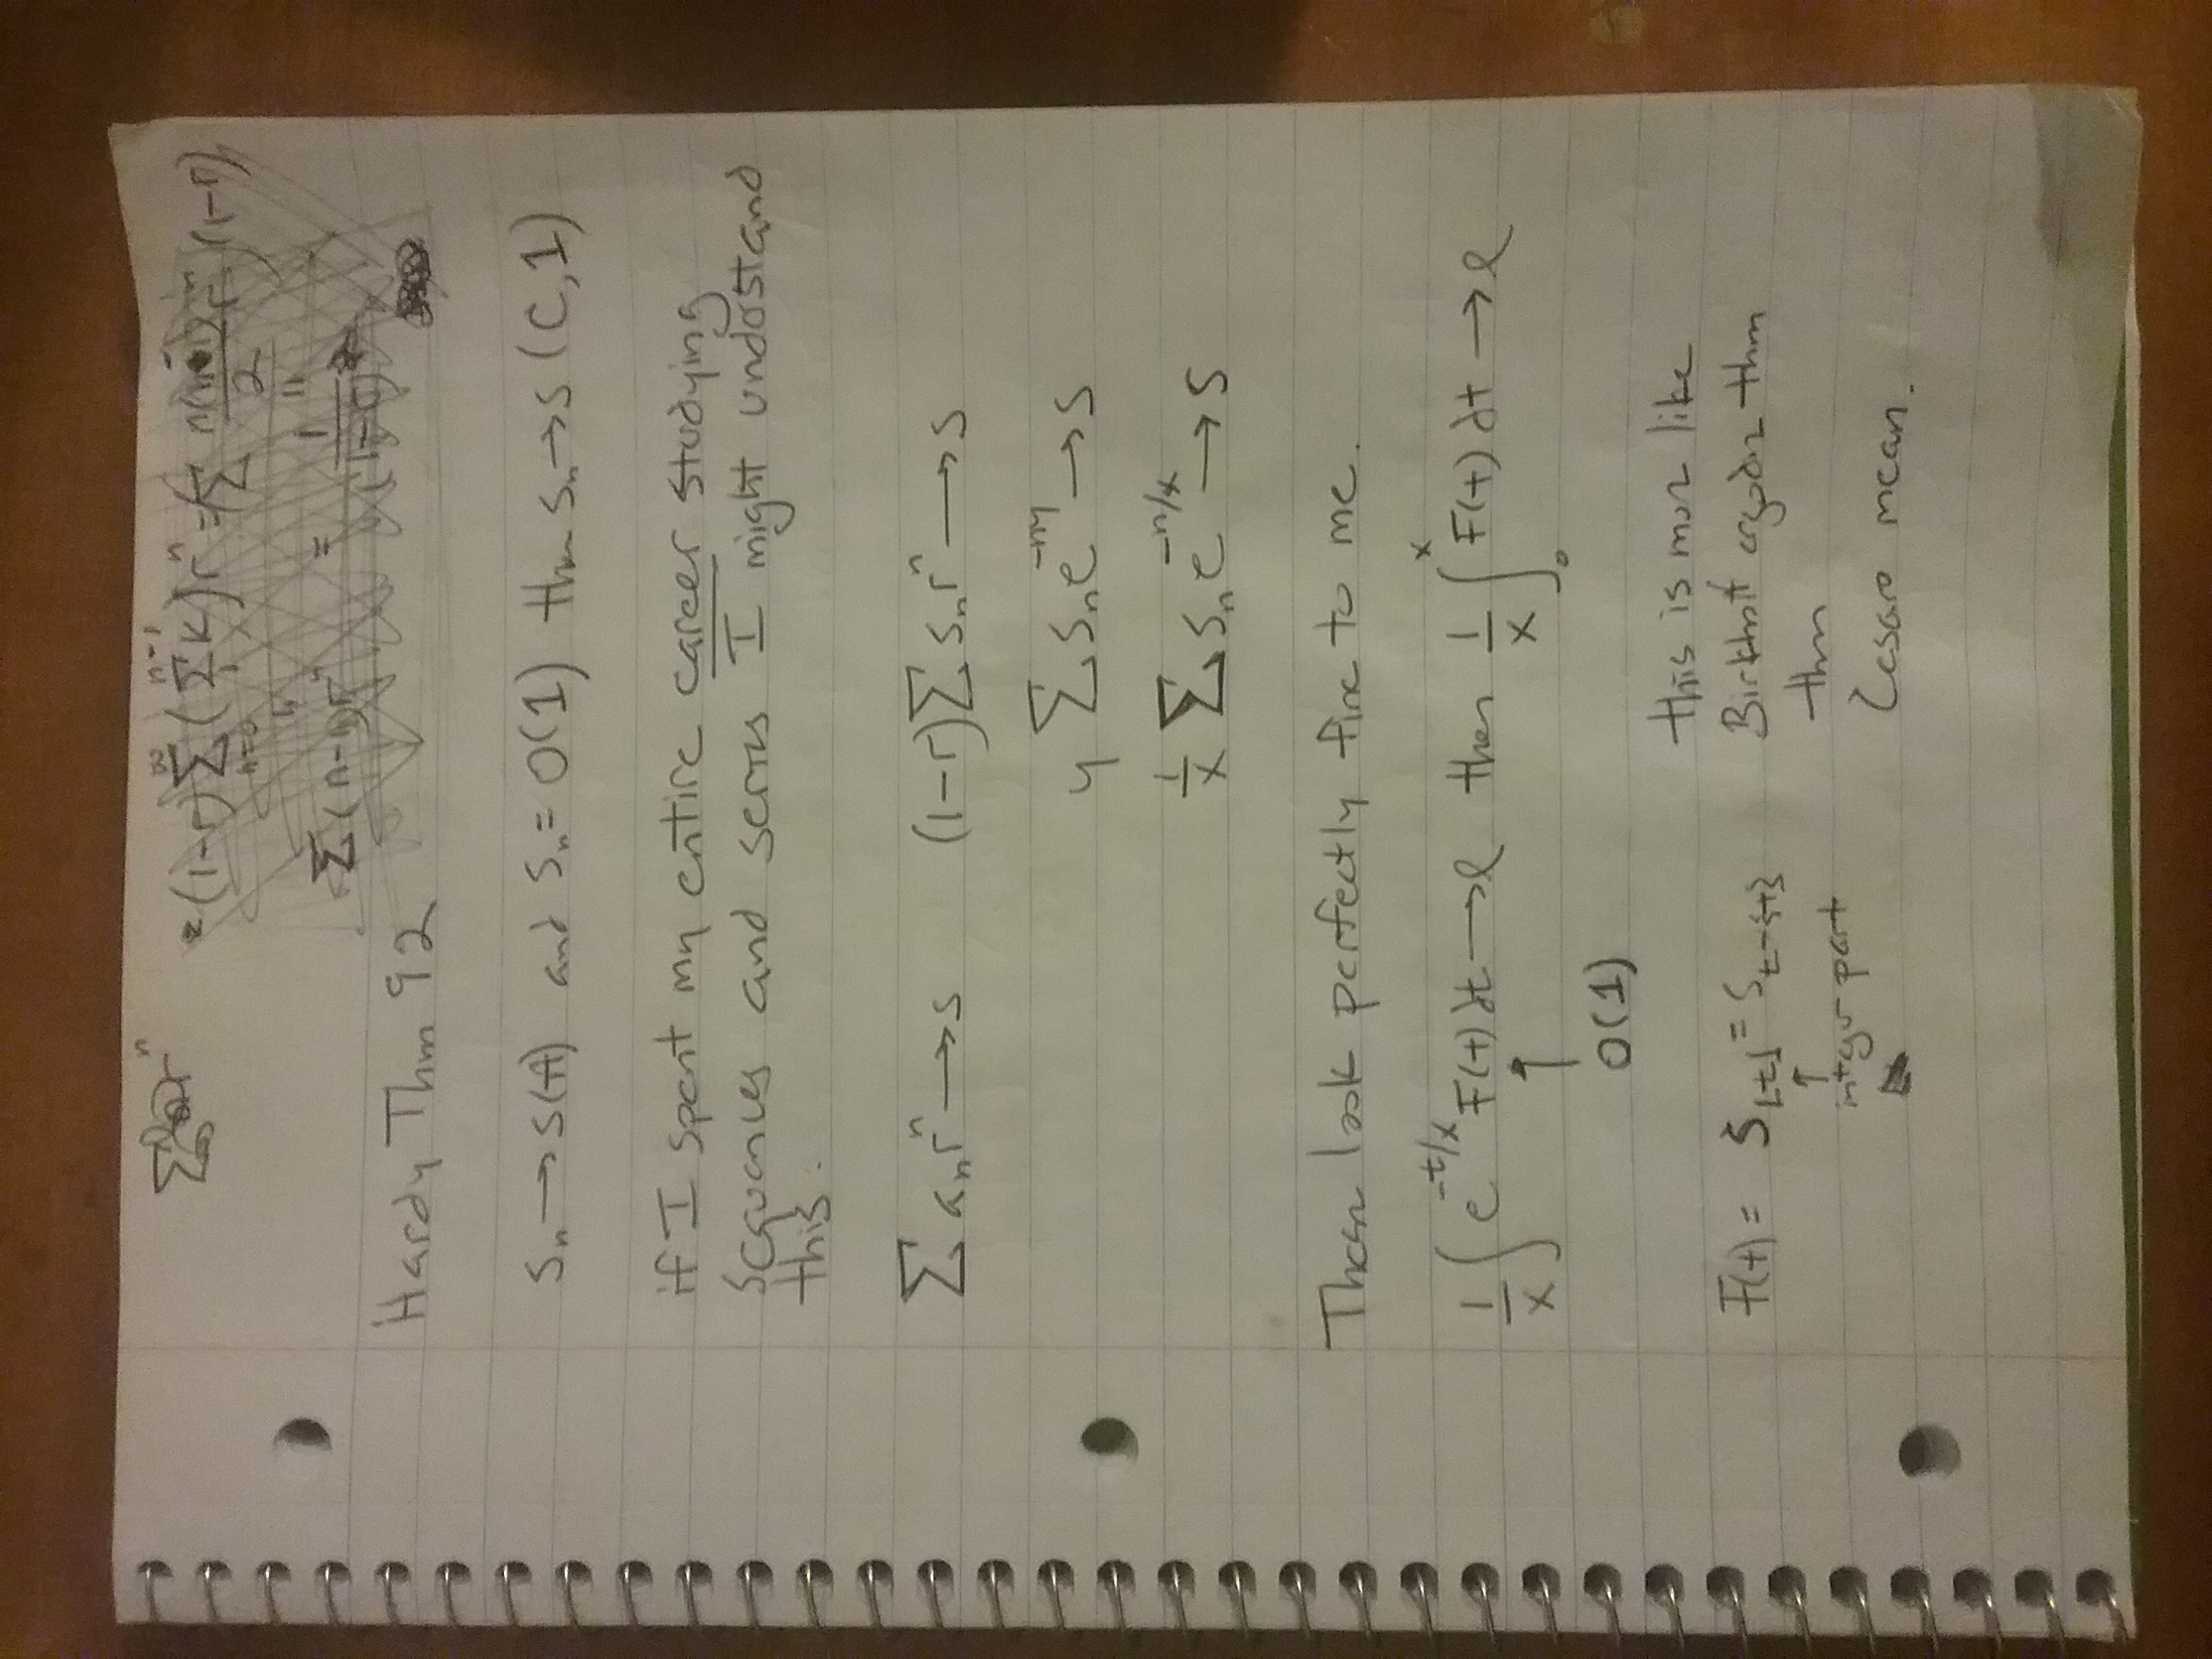 Σ r^n
= (1-r) Σ_{n=0}^∞ ( Σ_1^{n-1} k ) r^n = ( Σ n(n-1)/2 r^n ) (1-r)
Σ (n-1) r^n = 1/(1-r)
Hardy Thm 92
S_n → S(A) and S_n = O(1) then S_n → S (C,1)
if I spent my entire career studying
sequences and series I might understand
this.
Σ a_n r^n → S (1-r) Σ S_n r^n → S
y Σ S_n e^{-ny} → S
1/x Σ S_n e^{-n/x} → S
These look perfectly fine to me.
1/x ∫ e^{-t/x} F(t) dt → ℓ then 1/x ∫_0^x F(t) dt → ℓ
↑
O(1)
F(t) = S_{⌊t⌋} = S_{t-{t}}
↑
integer part
this is more like
Birkhoff ergodic thm
than
Cesaro mean.